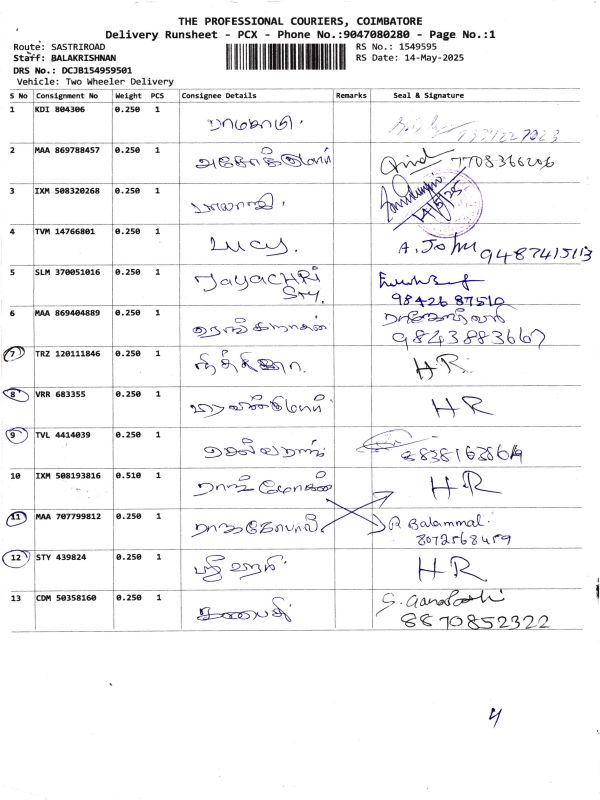 THE PROFESSIONAL COURIERS, COIMBATORE
Delivery Runsheet - PCX - Phone No.:9047080280 - Page No.:1
Route: SASTRIROAD
Staff: BALAKRISHNAN
DRS No.: DCJB154959501
Vehicle: Two Wheeler Delivery
RS No.: 1549595
RS Date: 14-May-2025
S No Consignment No Weight PCS Consignee Details Remarks Seal & Signature
1 KDI 804306 0.250 1
2 MAA 869788457 0.250 1 7708366206
3 IXM 508320268 0.250 1 14/5/25
4 TVM 14766801 0.250 1 Lucy. A. John 9487415113
5 SLM 370051016 0.250 1 JAYACHRI STY. 98426 87510
6 MAA 869404889 0.250 1 9843883667
7 TRZ 120111846 0.250 1 HR.
8 VRR 683355 0.250 1 HR
9 TVL 4414039 0.250 1
10 IXM 508193816 0.510 1 HR
11 MAA 707799812 0.250 1 ராஜகோபால் R Balammal. 8072568459
12 STY 439824 0.250 1 ஸ்ரீ ஹரி HR
13 CDM 50358160 0.250 1 கணபதி 8870852322
4